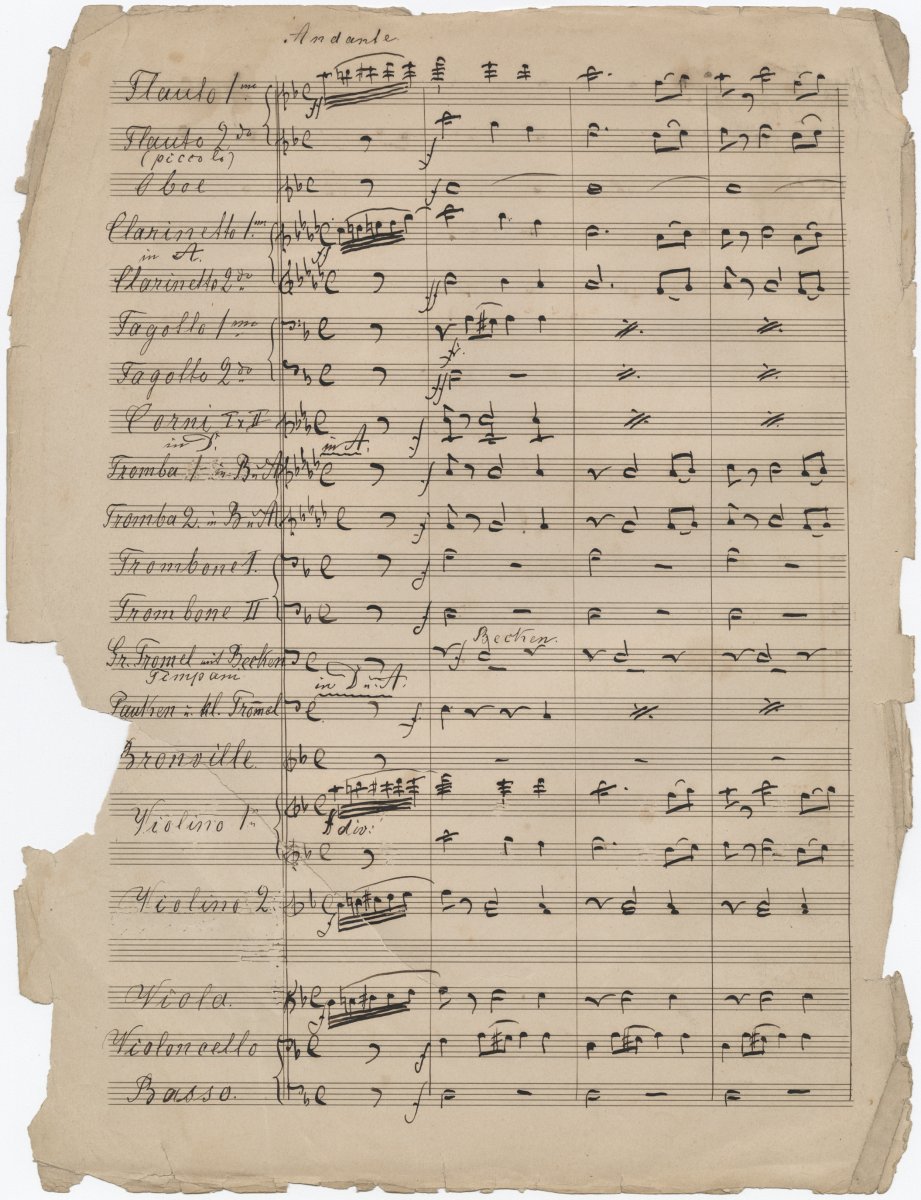 Andante
Flauto 1mo
Flauto 2do
(piccolo)
Oboe
Clarinetto 1mo
in A.
ff
Clarinetto 2do
ff
Fagotto 1mo
Fagotto 2do
ff
Corni I u II
in D.
in A.
f
Tromba 1 in B u A
f
Tromba 2. in B u A
f
Trombone 1.
f
Trombone II
f
Becken.
Gr. Tromel mit Becken
f
Timpani
in D u. A.
Pauken u. kl. Tromel
f
Violino 1o
f div:
Violino 2.
f
Viola.
f
Violoncello
f
Basso.
f